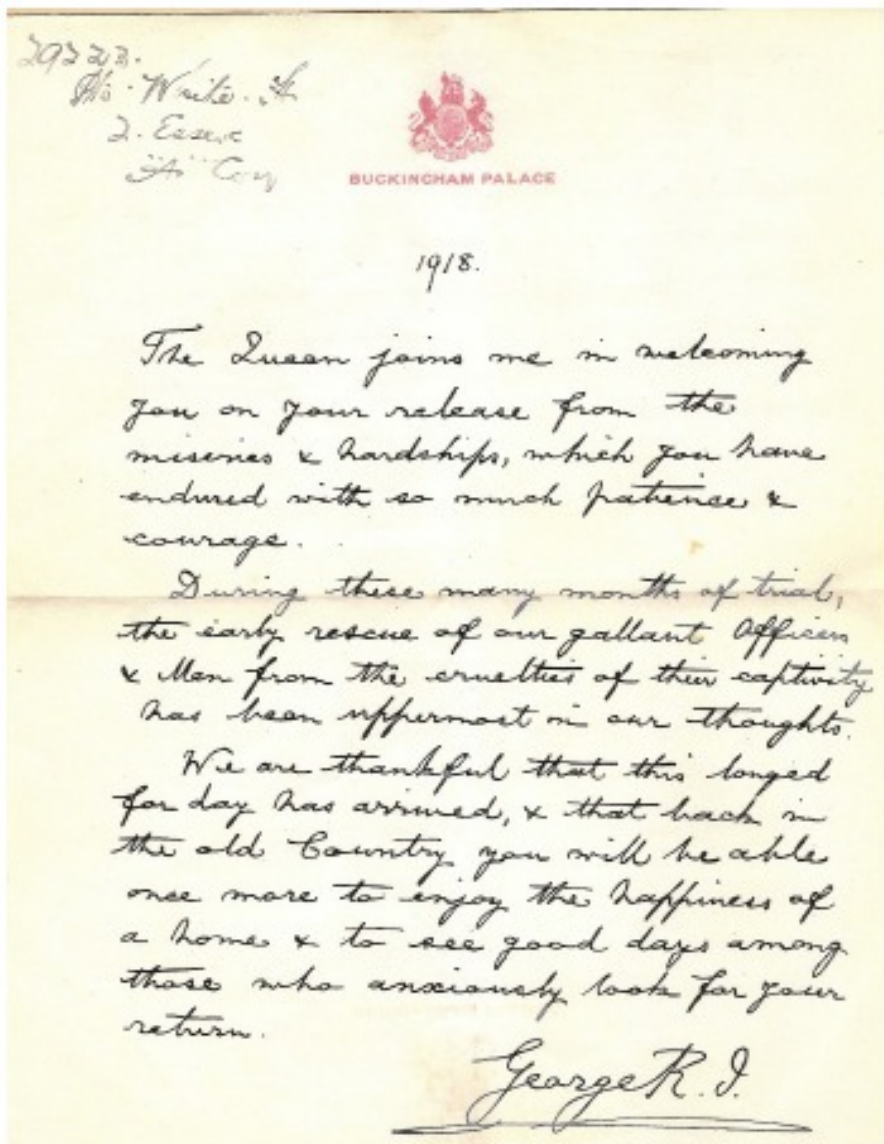 2. Essex
"A" Coy
BUCKINGHAM PALACE
1918.
The Queen joins me in welcoming
you on your release from the
miseries & hardships, which you have
endured with so much patience &
courage.
During these many months of trial,
the early rescue of our gallant Officers
& Men from the cruelties of their captivity
has been uppermost in our thoughts.
We are thankful that this longed
for day has arrived, & that back in
the old Country you will be able
once more to enjoy the happiness of
a home & to see good days among
those who anxiously look for your
return.
George R.I.